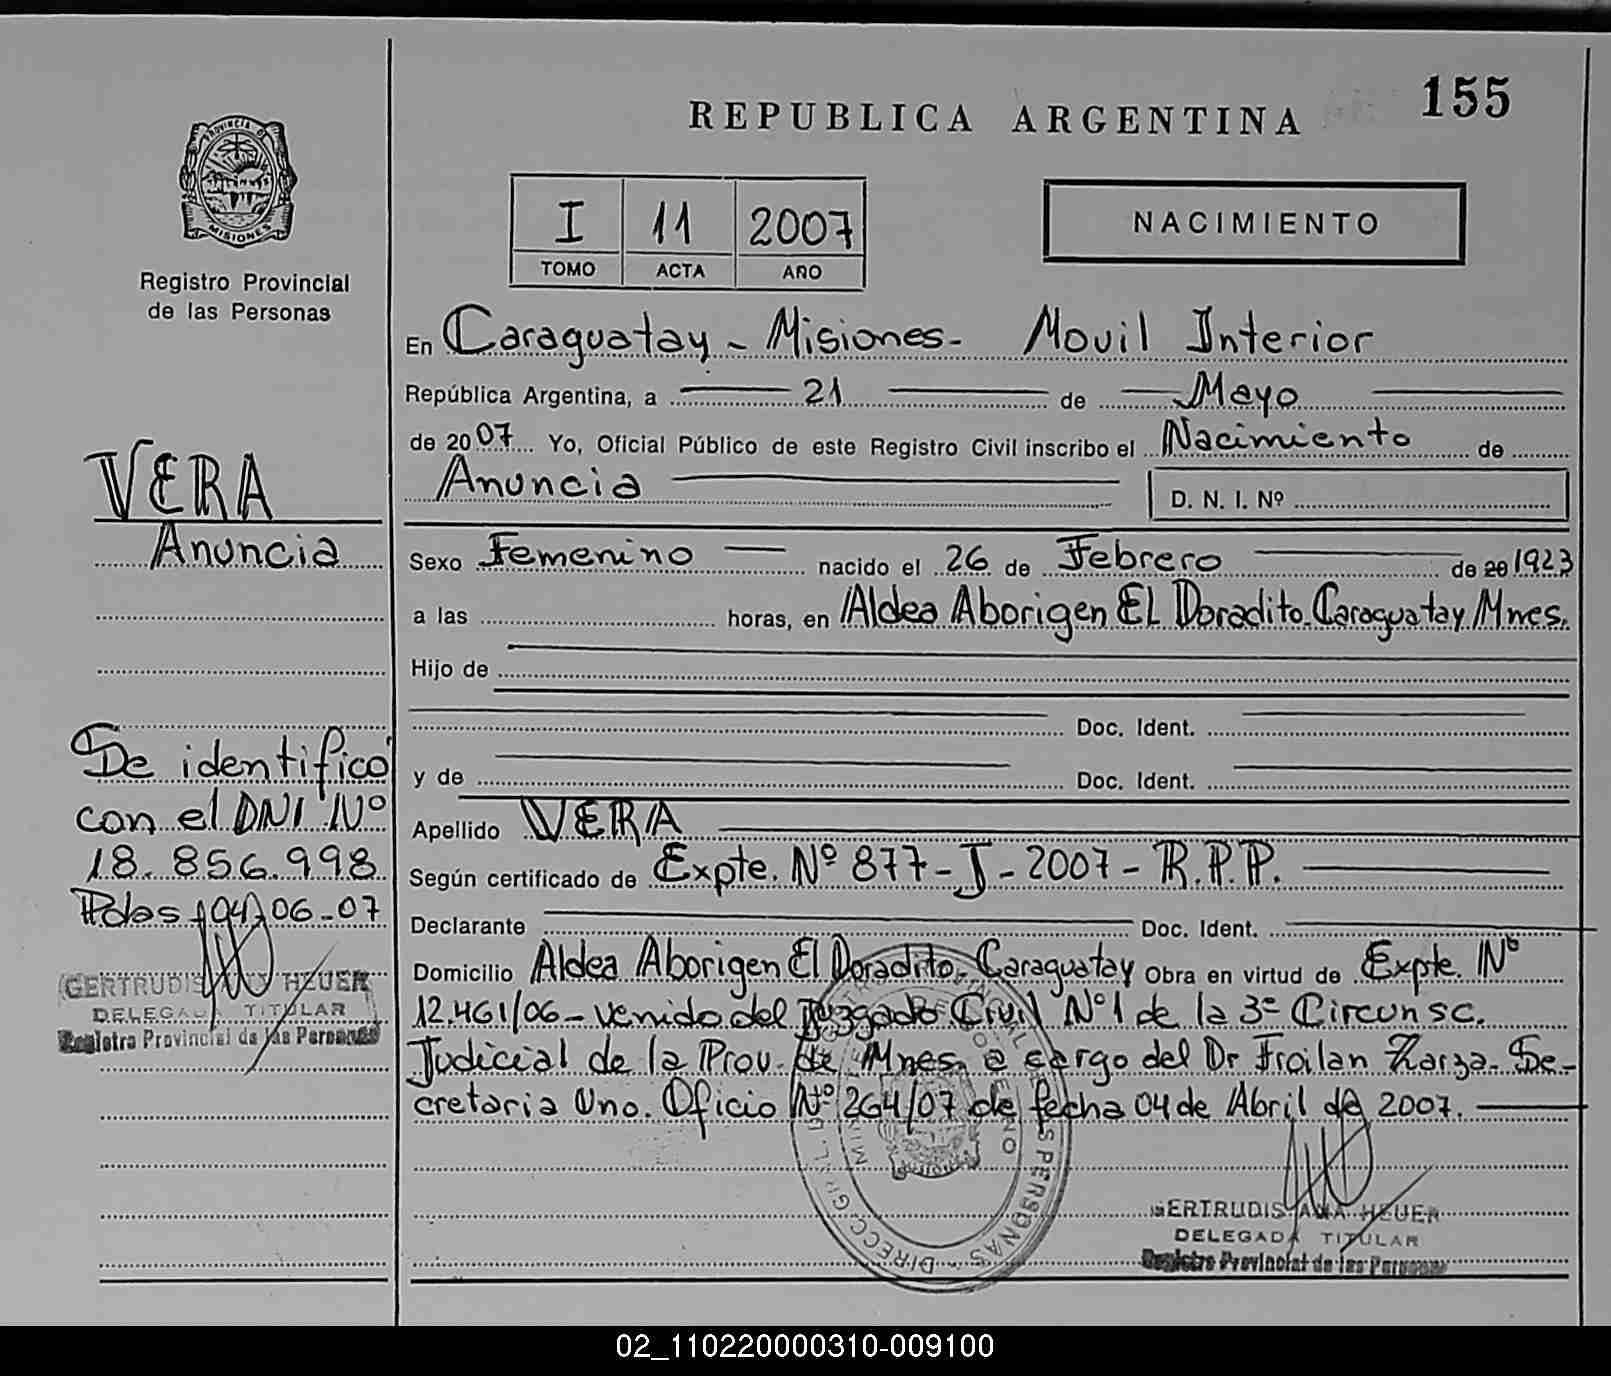 155
REPUBLICA ARGENTINA
PROVINCIA DE
MISIONES
Registro Provincial
de las Personas
I 11 2007
TOMO ACTA AÑO
NACIMIENTO
En Caraguatay - Misiones - Movil Interior
República Argentina, a 21 de Mayo
de 2007 Yo, Oficial Público de este Registro Civil inscribo el Nacimiento de
Anuncia D. N. I. Nº
Sexo Femenino nacido el 26 de Febrero de 20 1923
a las horas, en Aldea Aborigen EL Doradito. Caraguatay Mnes.
Hijo de
Doc. Ident.
y de Doc. Ident.
Apellido VERA
Según certificado de Expte. Nº 877 - J - 2007 - R.P.P.
Declarante Doc. Ident.
Domicilio Aldea Aborigen El Doradito. Caraguatay Obra en virtud de Expte. Nº
12.461/06 - venido del Juzgado Civil Nº 1 de la 3º Circunsc.
Judicial de la Prov. de Mnes. a cargo del Dr Froilan Zarza. Se-
cretaria Uno. Oficio Nº 264/07 de fecha 04 de Abril de 2007.
GERTRUDIS ANA HEUER
DELEGADA TITULAR
Registro Provincial de las Personas
VERA
Anuncia
Se identificó
con el DNI Nº
18.856.998
Pdas 04-06-07
GERTRUDIS HEUER
DELEGADA TITULAR
Registro Provincial de las Personas
02_110220000310-009100